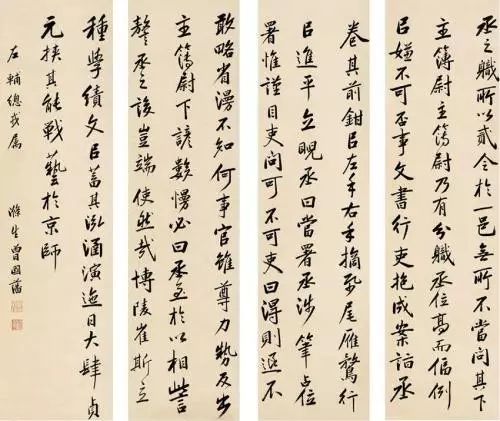 丞之職所以貳令於一邑無所不當問其下
主簿尉主簿尉乃有分職丞位高而偪例
以嫌不可否事文書行吏抱成案詣丞
卷其前鉗以左手右手摘紙尾雁鶩行
以進平立睨丞曰當署丞涉筆占位
署惟謹目吏問可不可吏曰得則退不
敢略省漫不知何事官雖尊力勢反出
主簿尉下諺數慢必曰丞至於以相訾
謷丞之設豈端使然哉博陵崔斯立
種學績文以蓄其泓涵演迤日大肆貞
元挾其能戰藝於京師
左輔總戎屬
滌生曾國藩